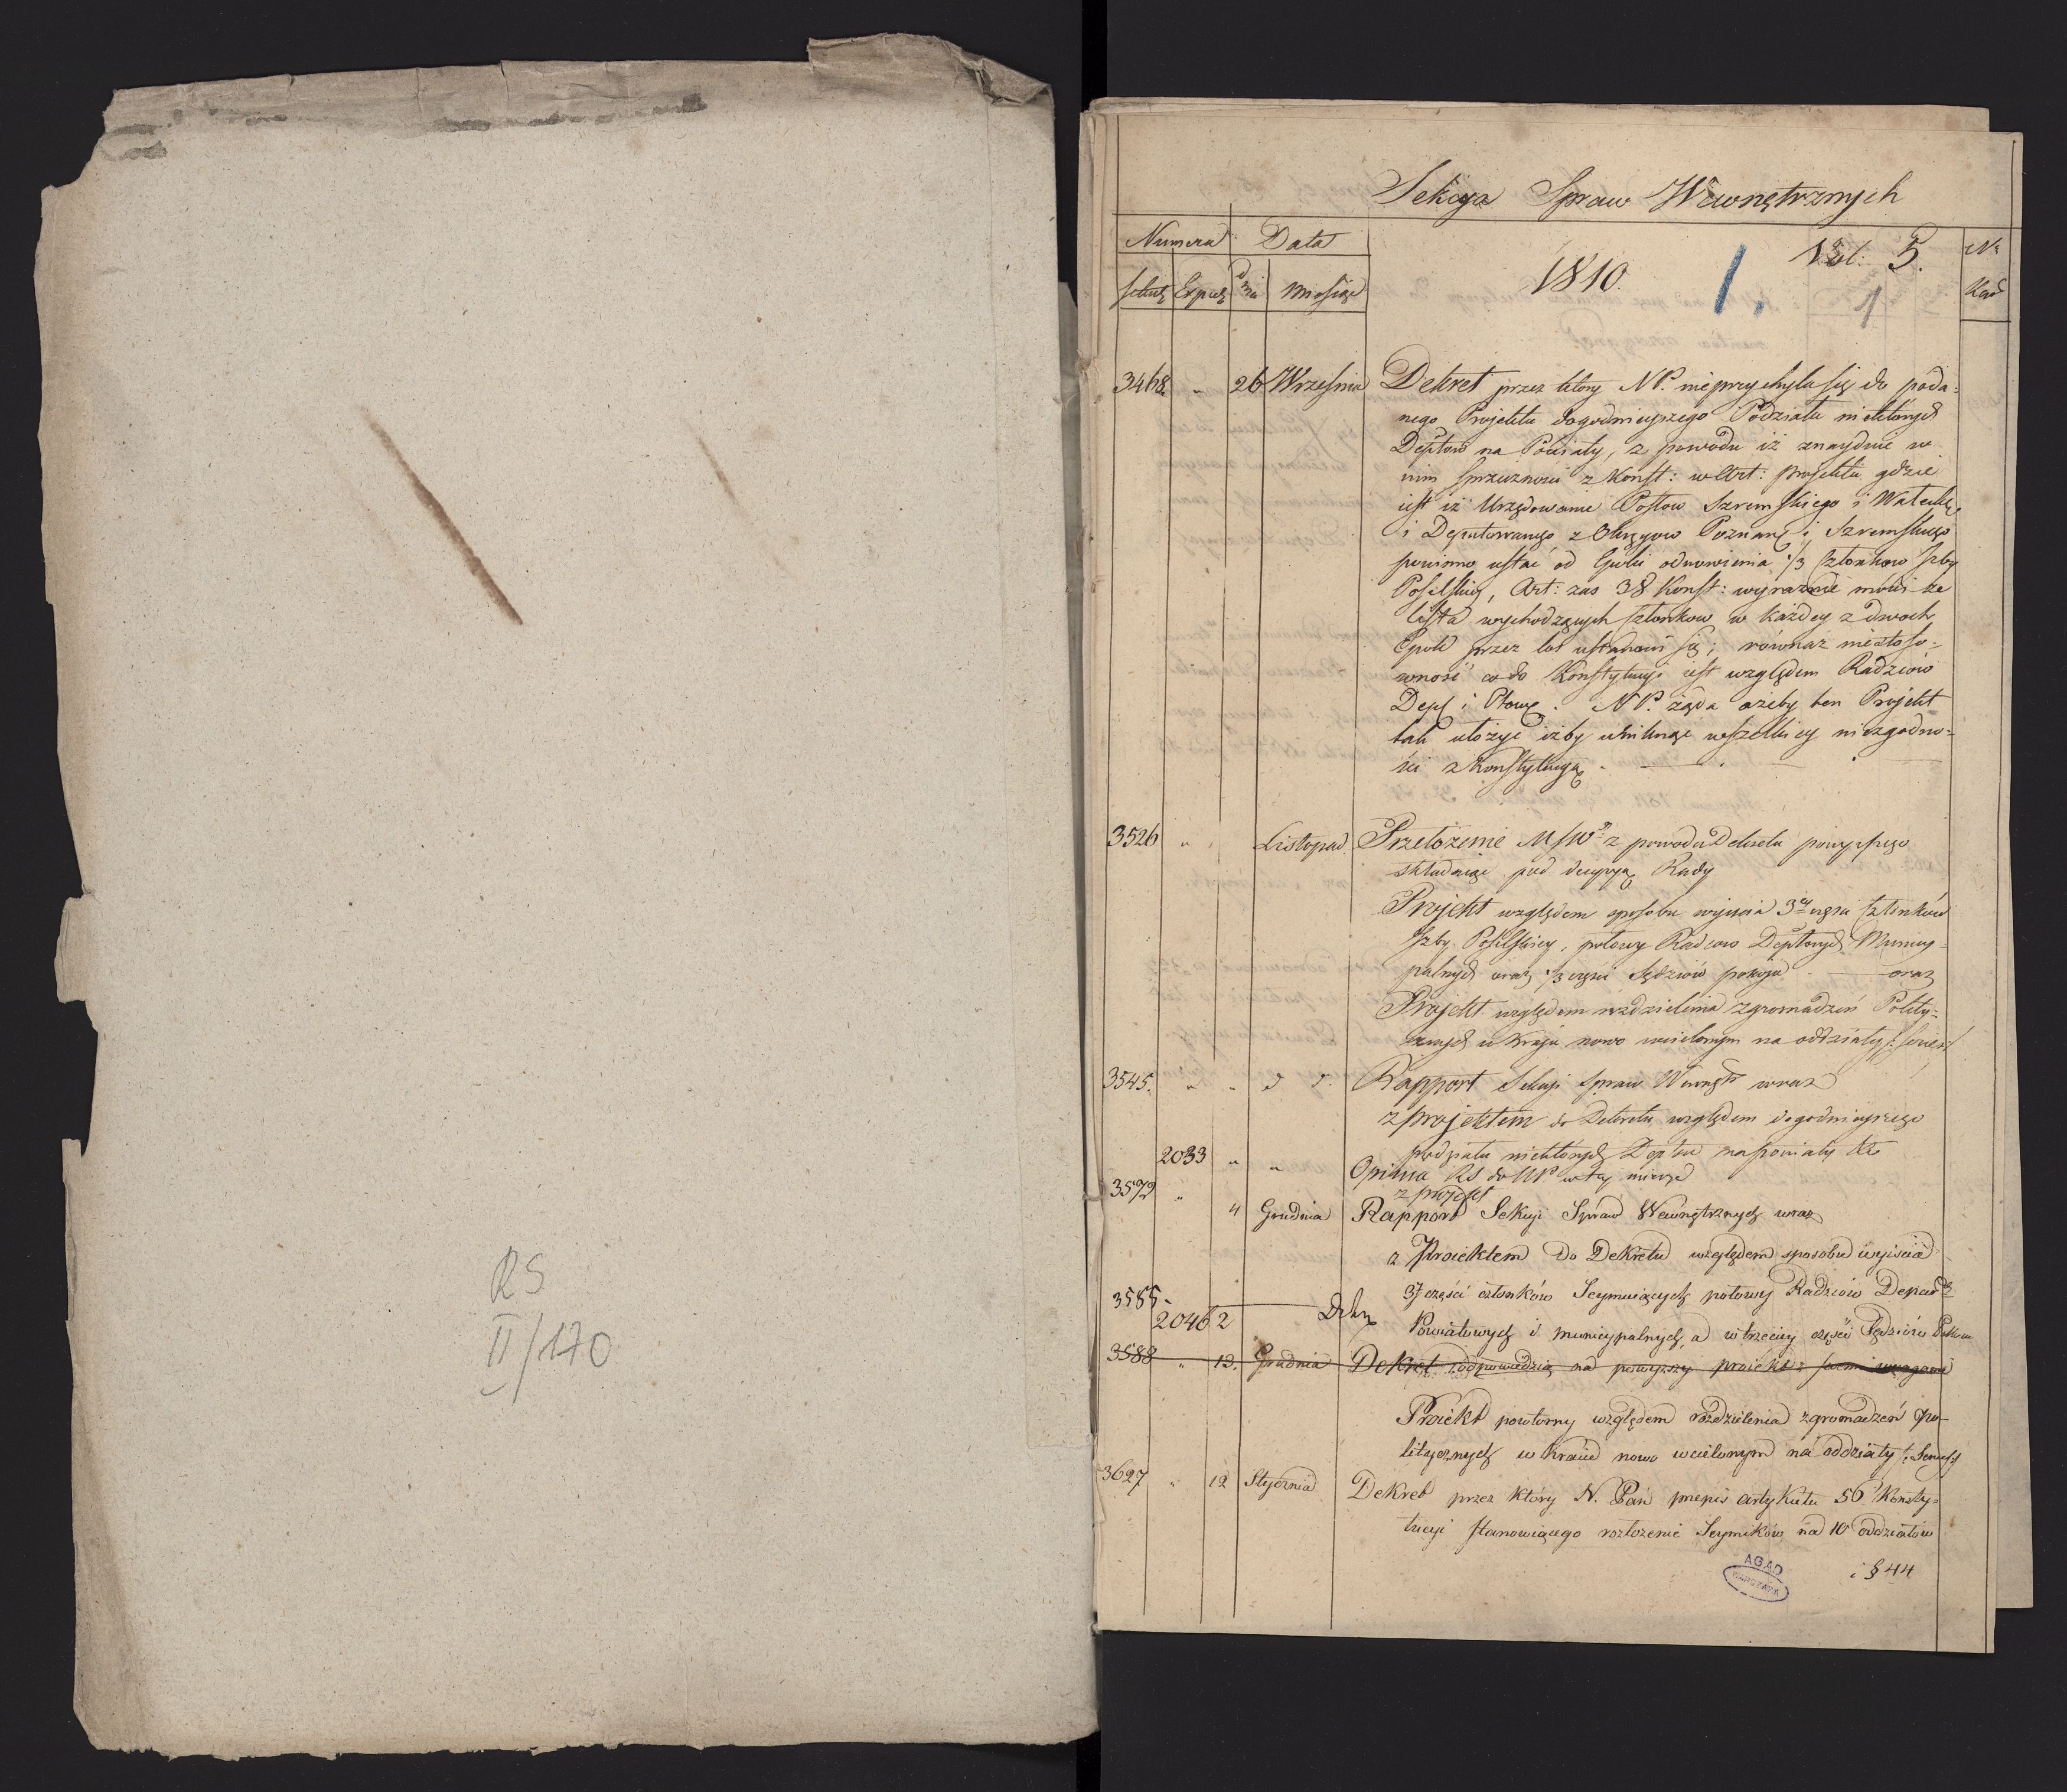 RS
II/170
Sekcya Spraw Wewnętrznych
Numera Data
1810. 1. Vol: 5. Nr
dnia Miesiąc Kar
1
3468. „ 26 Wrzesnia Dekret przez który NP. nieprzychyla się do poda-
nego Projektu dogodnieyszego Podziału niektórych
Depttow na Powiaty, z powodu iż znayduie w
nim sprzeczność z Konst: w Art: projektu gdzie
iest iż Urzędowanie Posłow Szremskiego i
i Deputowanego z Okręgow Poznań i Szremskiego
powinno ustać od Epoki odnowienia 1/3 członkow Izby
Poselskiey, Art: zas 38 Konst: wyraznie mówi że
lista wychodzących członkow w każdey z dwoch
Epok przez los ustanowi się; równaż niestoso-
wność co do Konstytucyi iest względem Radzców
Dept i Powt. NP. żąda ażeby ten Projekt
tak ułożyć iżby uniknąć wszelkiey niezgodno-
ści z Konstytucyą.
3526 „ Listopad. Przełożenie MSW z powodu Dekretu powyższego
składaiąc pod decyzyą Rady
Projekt względem sposobu wyiscia 3ey części członków
Izby Poselskiey, połowy Radzcow Depttowych Municy-
palnych oraz 1/3 części Sędziów pokoju — oraz
Projekt względem rozdzielenia zgromadzeń Polity-
cznych w kraju nowo wcielonym na oddziały
3545. „ „ d d. Rapport Sekcyi Spraw Wewnętr wraz
z projektem do Dekretu względem dogodnieyszego
podziału niektórych Deptow na powiaty
2033 „ „ Opinia RS do NP w tey mierze
z projekt
3572 „ 4 Grudnia Rapport Sekcyi Spraw Wewnętrznych wraz
z Proiektem do Dekretu względem sposobu wyiscia
3y części członków Seymuiących połowy Radzców Depart
3585-
2046 2
Powiatowych i municypalnych, a w trzeciey części Sędziów Pokoiu
3588 „ 13. Grudnia Dekret odpowiedzią na powyższy proiekt:
Proiekt powtorny względem rozdzielenia zgromadzeń po-
litycznych w Kraiu nowo wcielonym na oddziały
3627 „ 12 Stycznia Dekret przez który N. Pan przepis artykułu 56 Konsty-
tucyi stanowiącego rozłożenie Seymików na 10 oddziałów
i § 44
AGAD
WARSZAWA